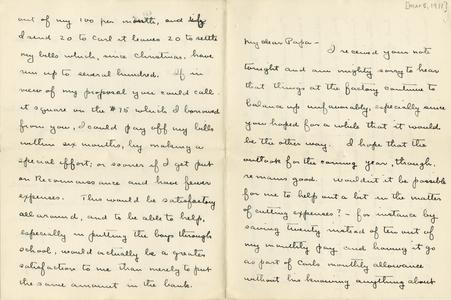 [Mar 8, 1918]
My dear Papa –
I received your note
tonight and am mighty sorry to hear
that things at the factory continue to
balance up unfavorably, especially since
you hoped for a while that it would
be the other way. I hope that the
outlook for the coming year, though,
remains good. Wouldn't it be possible
for me to help out a bit in the matter
of cutting expenses? – for instance by
saving twenty instead of ten out of
my monthly pay and having it go
as part of Carl's monthly allowance
without his knowing anything about
out of my 100 per month, and if
I send 20 to Carl it leaves 20 to settle
my bills which, since Christmas, have
run up to several hundred. If in
view of my proposal you could call
it square on the $75 which I borrowed
from you, I could pay off my bills
within six months, by making a
special effort; or sooner if I get put
on Reconnaissance and have fewer
expenses. This would be satisfactory
all around, and to be able to help,
especially in putting the boys through
school, would actually be a greater
satisfaction to me than merely to put
the same amount in the bank.